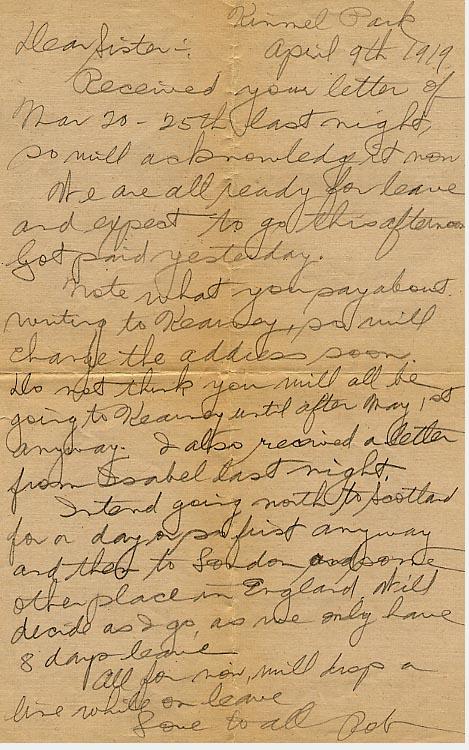 Kinmel Park
April 9th 1919.
Dear Sister:-
Received your letter of
Mar 20-25th last night,
so will acknowledge it now
We are all ready for leave
and expect to go this afternoon
Got paid yesterday.
Note what you say about
writing to Kearney, so will
change the address soon.
Do not think you will all be
going to Kearney until after May 1st
anyway. I also received a letter
from Isabel last night.
Intend going north to Scotland
for a day or so first anyway
and then to London and some
other place in England. Will
decide as I go, as we only have
8 days leave
All for now, will drop a
line while on leave
Love to all Rob